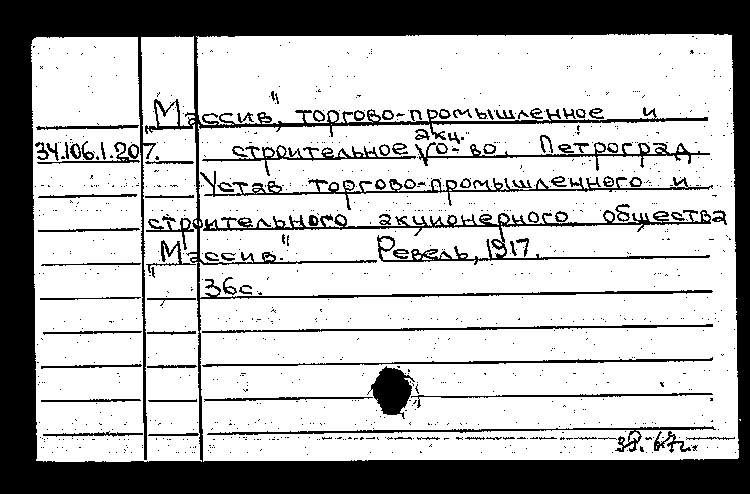 „Массив", торгово-промышленное и
34.106.1.207. строительное акц. о-во. Петроград.
Устав торгово-промышленного и
строительного акционерного общества
„Массив." Ревель, 1917.
36с.